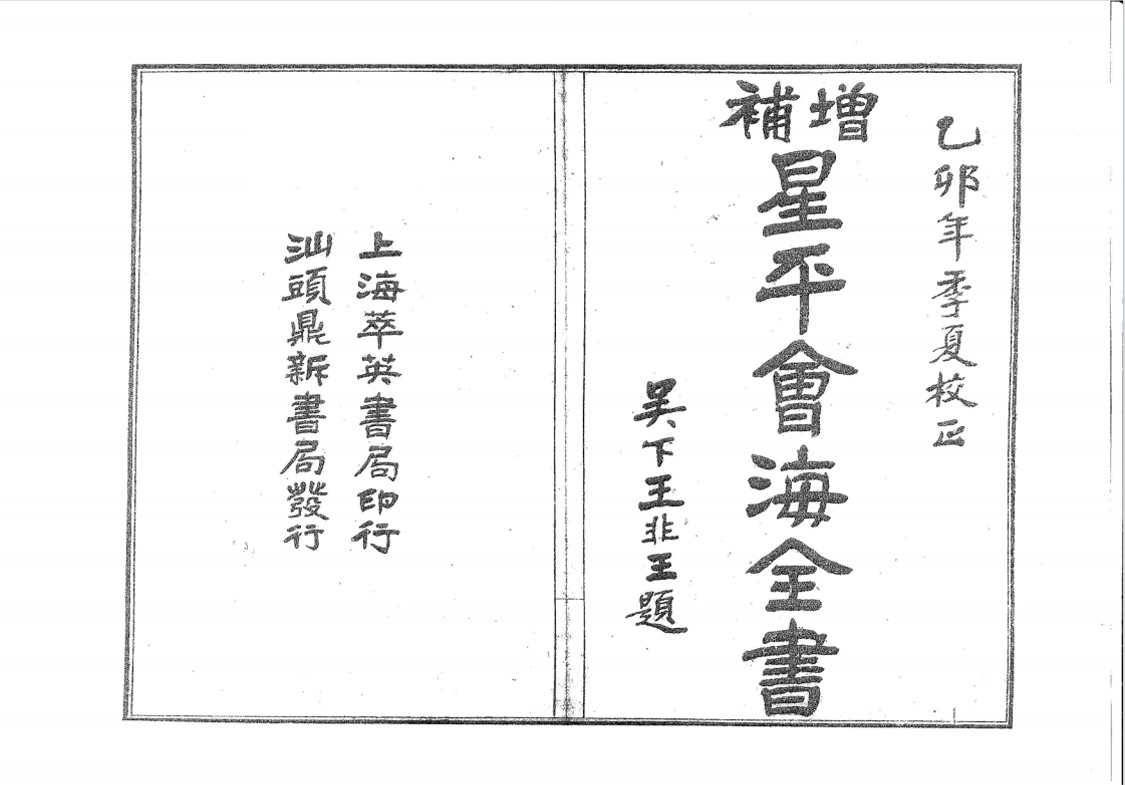 乙卯年季夏校正
增補
星平會海全書
吴下王非王題
上海萃英書局印行
汕頭鼎新書局發行